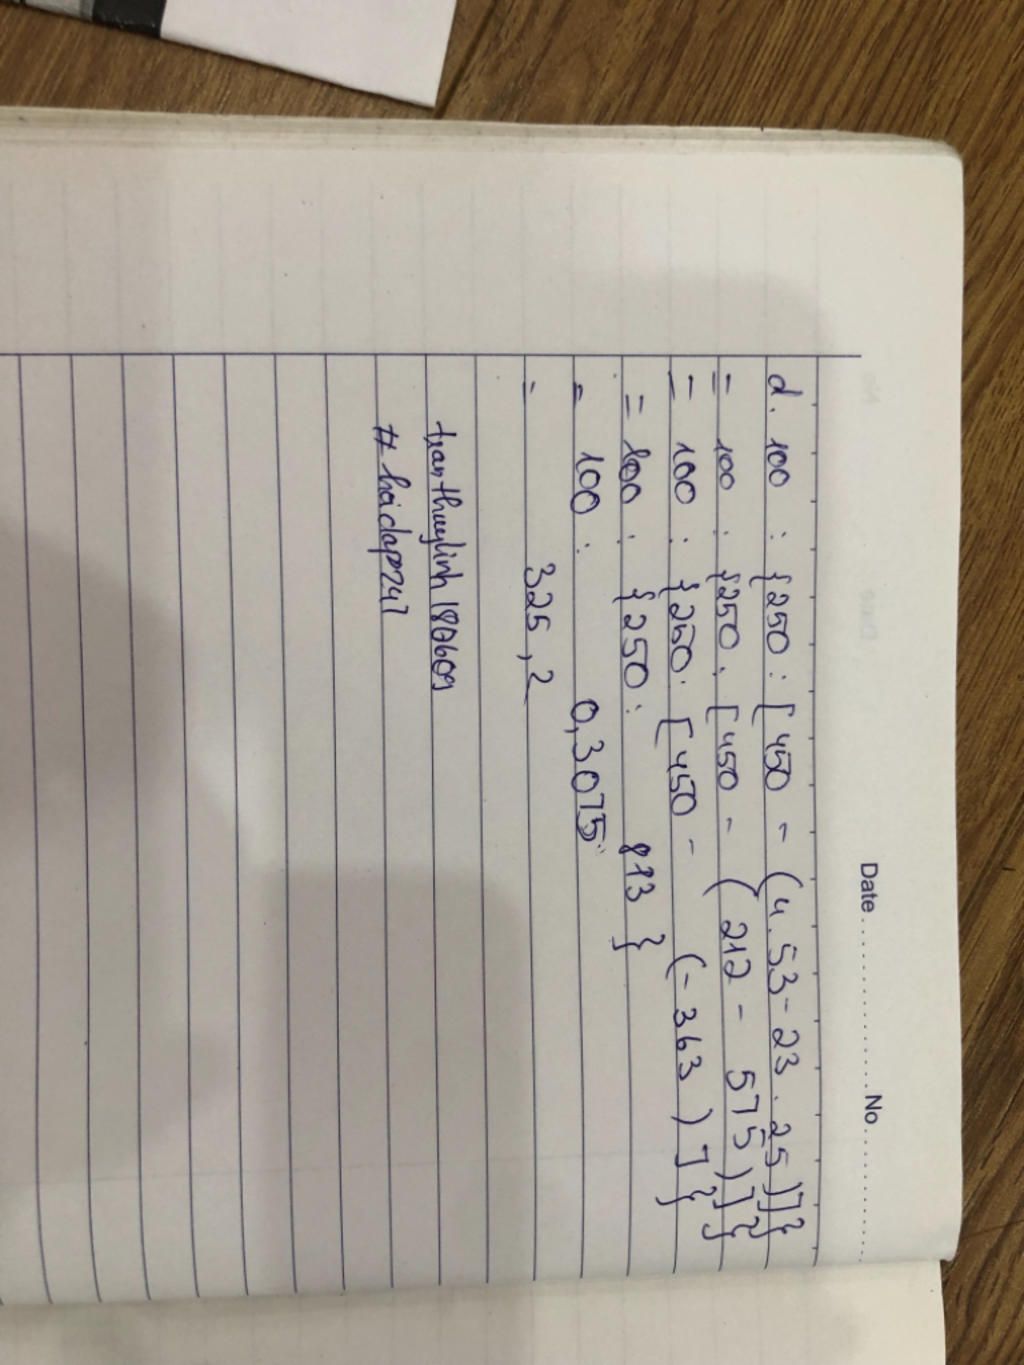 Date.................. No..................
d. 100 : {250 : [450 - (4.53 - 23.25)]}
= 100 : {250 : [450 - (212 - 575)]}
= 100 : {250 : [450 - (-363)]}
= 100 : {250 : 813}
= 100 : 0,3075
= 325,2
tranthuylinh180609
# hoidap247